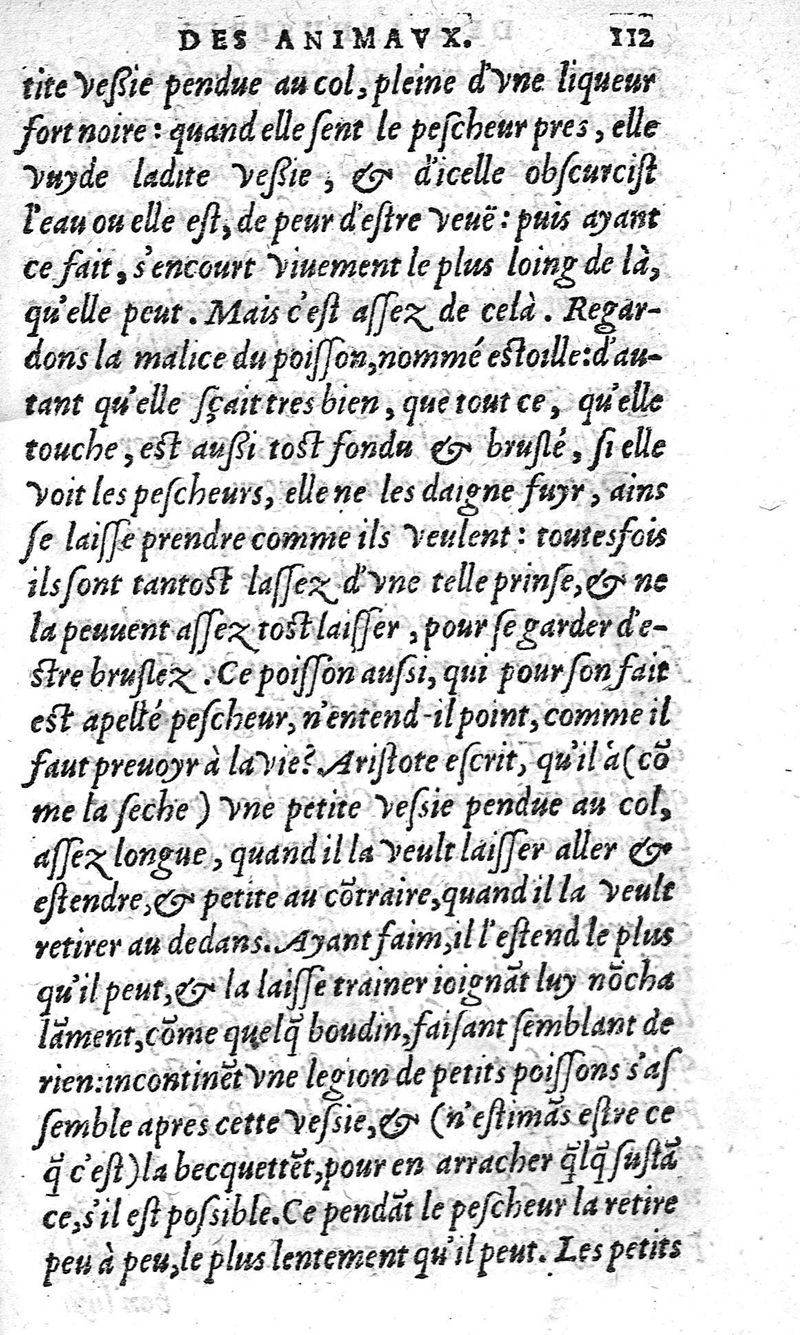 DES ANIMAVX. 112
tite veßie pendue au col, pleine d'vne liqueur
fort noire : quand elle ſent le peſcheur pres, elle
vuyde ladite veßie, & d'icelle obſcurciſt
l'eau ou elle eſt, de peur d'eſtre veuë : puis ayant
ce fait, s'encourt viuement le plus loing de là,
qu'elle peut. Mais c'eſt aſſez de celà. Regar-
dons la malice du poiſſon, nommé eſtoille: d'au-
tant qu'elle ſçait tres bien, que tout ce, qu'elle
touche, eſt außi toſt fondu & bruſlé, ſi elle
voit les peſcheurs, elle ne les daigne fuyr, ains
ſe laiſſe prendre comme ils veulent : toutesfois
ils ſont tantoſt laſſez d'vne telle prinſe, & ne
la peuuent aſſez toſt laiſſer, pour ſe garder d'e-
ſtre bruſlez. Ce poiſſon auſsi, qui pour ſon fait
eſt apellé peſcheur, n'entend-il point, comme il
faut preuoyr à la vie? Ariſtote eſcrit, qu'il à (cō
me la ſeche) vne petite veſsie pendue au col,
aſſez longue, quand il la veult laiſſer aller &
eſtendre, & petite au cōtraire, quand il la veult
retirer au dedans. Ayant faim, il l'eſtend le plus
qu'il peut, & la laiſſe trainer ioignāt luy nōcha
lāment, cōme quelq̄ boudin, faiſant ſemblant de
rien: incontinēt vne legion de petits poiſſons s'aſ
ſemble apres cette veſsie, & (n'eſtimās eſtre ce
q̄ c'eſt) la becquettēt, pour en arracher q̄lq̄ ſuſtā
ce, s'il eſt poſsible. Ce pendāt le peſcheur la retire
peu à peu, le plus lentement qu'il peut. Les petits